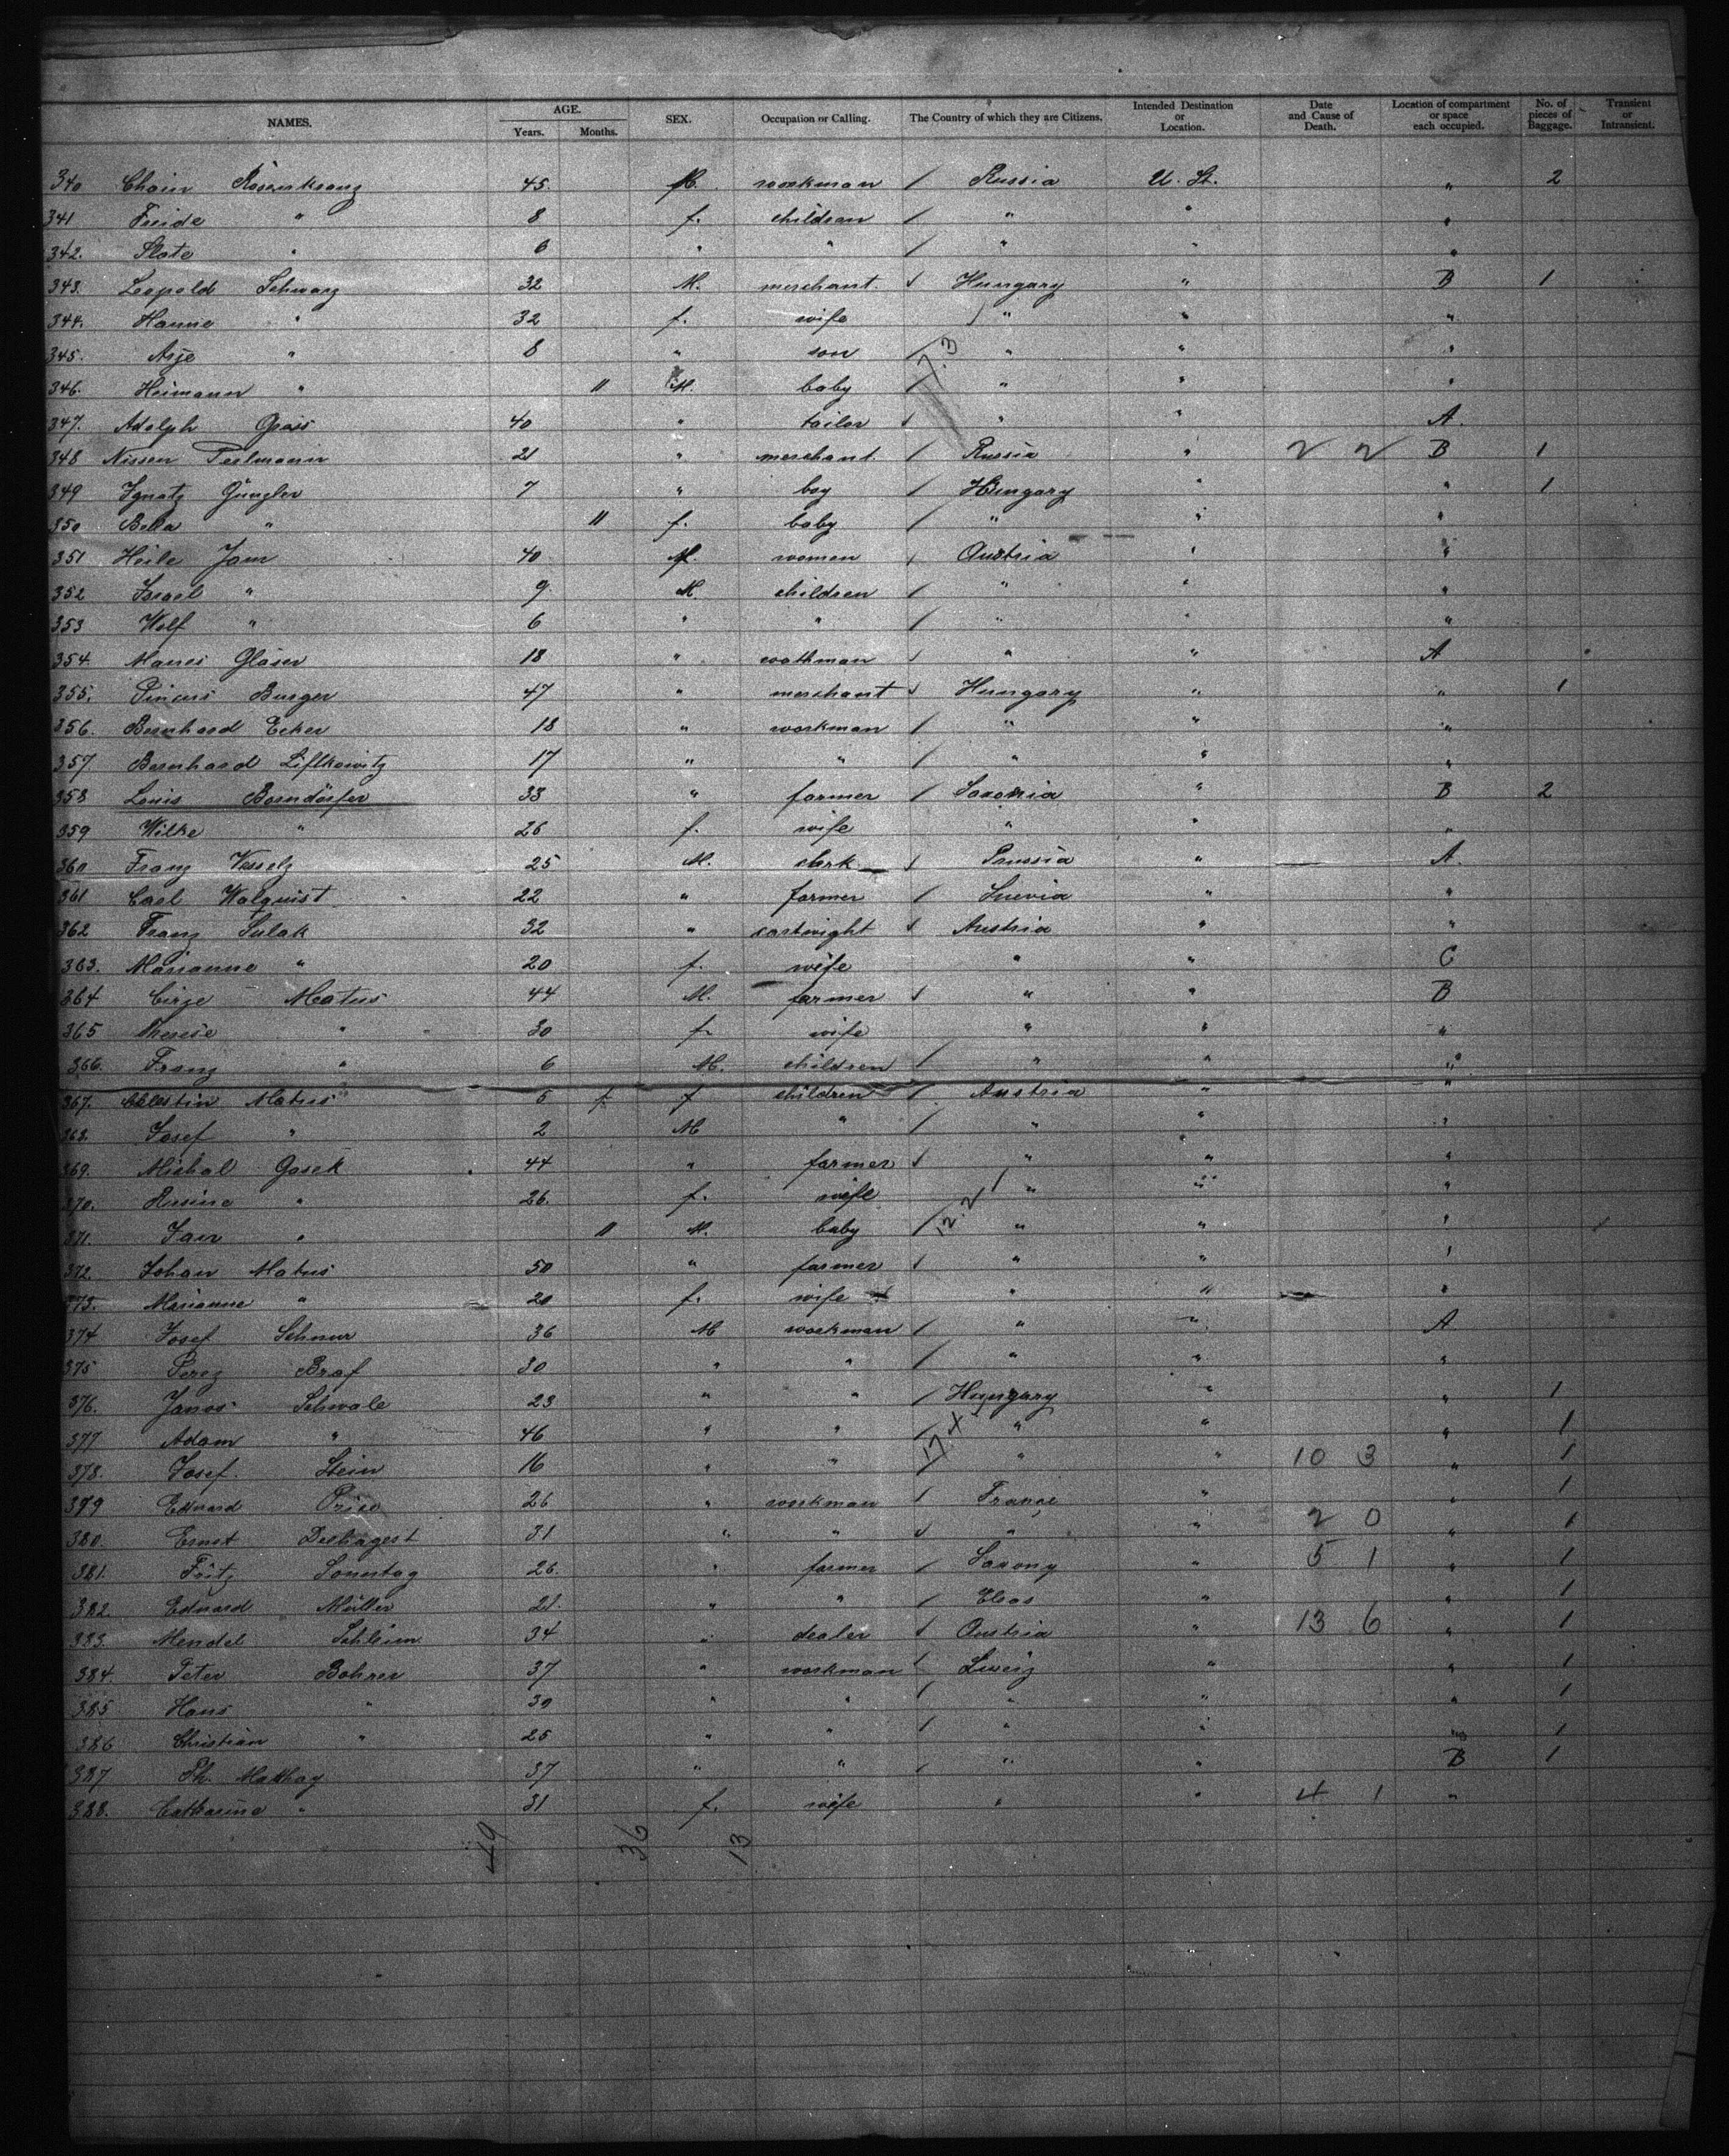 NAMES. AGE. Years. Months. SEX. Occupation or Calling. The Country of which they are Citizens. Intended Destination or Location. Date and Cause of Death. Location of compartment or space each occupied. No. of pieces of Baggage. Transient or Intransient.
340 Chain Rosenkranz 45. M. workman / Russia U. St. " 2
341 Freide " 8 f. children / " " "
342. Slate " 6 " " / " " "
343. Leopold Schwarz 32 M. merchant. / Hungary " B 1
344. Hanne " 32 f. wife / " " "
345. Asje " 8 " son / " " "
346. Heimann " 11 M. baby / " " "
347. Adolph Gross 40 " tailor / " " A.
348 Nissen Perlmann 21 " merchant. / Russia " 2 2 B 1
349 Ignatz Güngler 7 " boy / Hungary " " 1
350 Bella " 11 f. baby / " " "
351 Heile Jam 40 f. women / Austria " "
352 Israel " 9 M. children / " " "
353 Wolf " 6 " " / " " "
354 Manes Gläser 18 " workman / " " A
355. Pincus Burger 47 " merchant / Hungary " " 1
356. Bernhard Ecker 18 " workman / " " "
357. Bernhard Lifkowitz 17 " " / " " "
358 Louis Borndörfer 33 " farmer / Saxonia " B 2
359 Wilke " 26 f. wife " " "
360 Franz Wesselz 25 M. clerk / Prussia " A.
361 Carl Walquist 22 " farmer / Suevia " "
362 Franz Sulak 32 " cartwright / Austria " "
363. Marianne " 20 f. wife " " C
364 Cirze Matus 44 M. farmer / " " B
365 Therese " 30 f. wife " " "
366. Franz " 6 M. children / " " "
367. Celestin Matus 5 f. f children / Austria " "
368. Josef " 2 M " / " " "
369. Michal Gasek 44 " farmer / " " "
370. Rusina " 26. f. wife / " " "
371. " 11 M. baby / 12.2 " " "
372. Johan Matus 50 " farmer / " " "
373. Marianne " 20 f. wife " " "
374 Josef Schnur 36 M workman / " " A
375 Perez Graf 30 " " / " " "
376. Janos Schwale 23 " " / Hungary " " 1
377. Adam " 46 " " / " " " 1
378. Josef. Stein 16 " " / " " 10 3 " 1
379 Eduard 26 " workman / France " " 1
380. Ernst 31 " " / " " 2 0 " 1
381. Fritz Sonntag 26. " farmer / Saxony " 5 1 " 1
382. Eduard Müller 21. " " / " " 1
383. Mendel Schleim 34 " dealer / Austria " 13 6 " 1
384. Peter Bohrer 37 " workman / Sweiz " " 1
385 Hans " 30 " " / " " " 1
386 Christian " 25 " " / " " " 1
387 Ph. Matthay 37 " " / " " B 1
388. Catharina " 31 f. wife " " 4 1 "
49 36 13